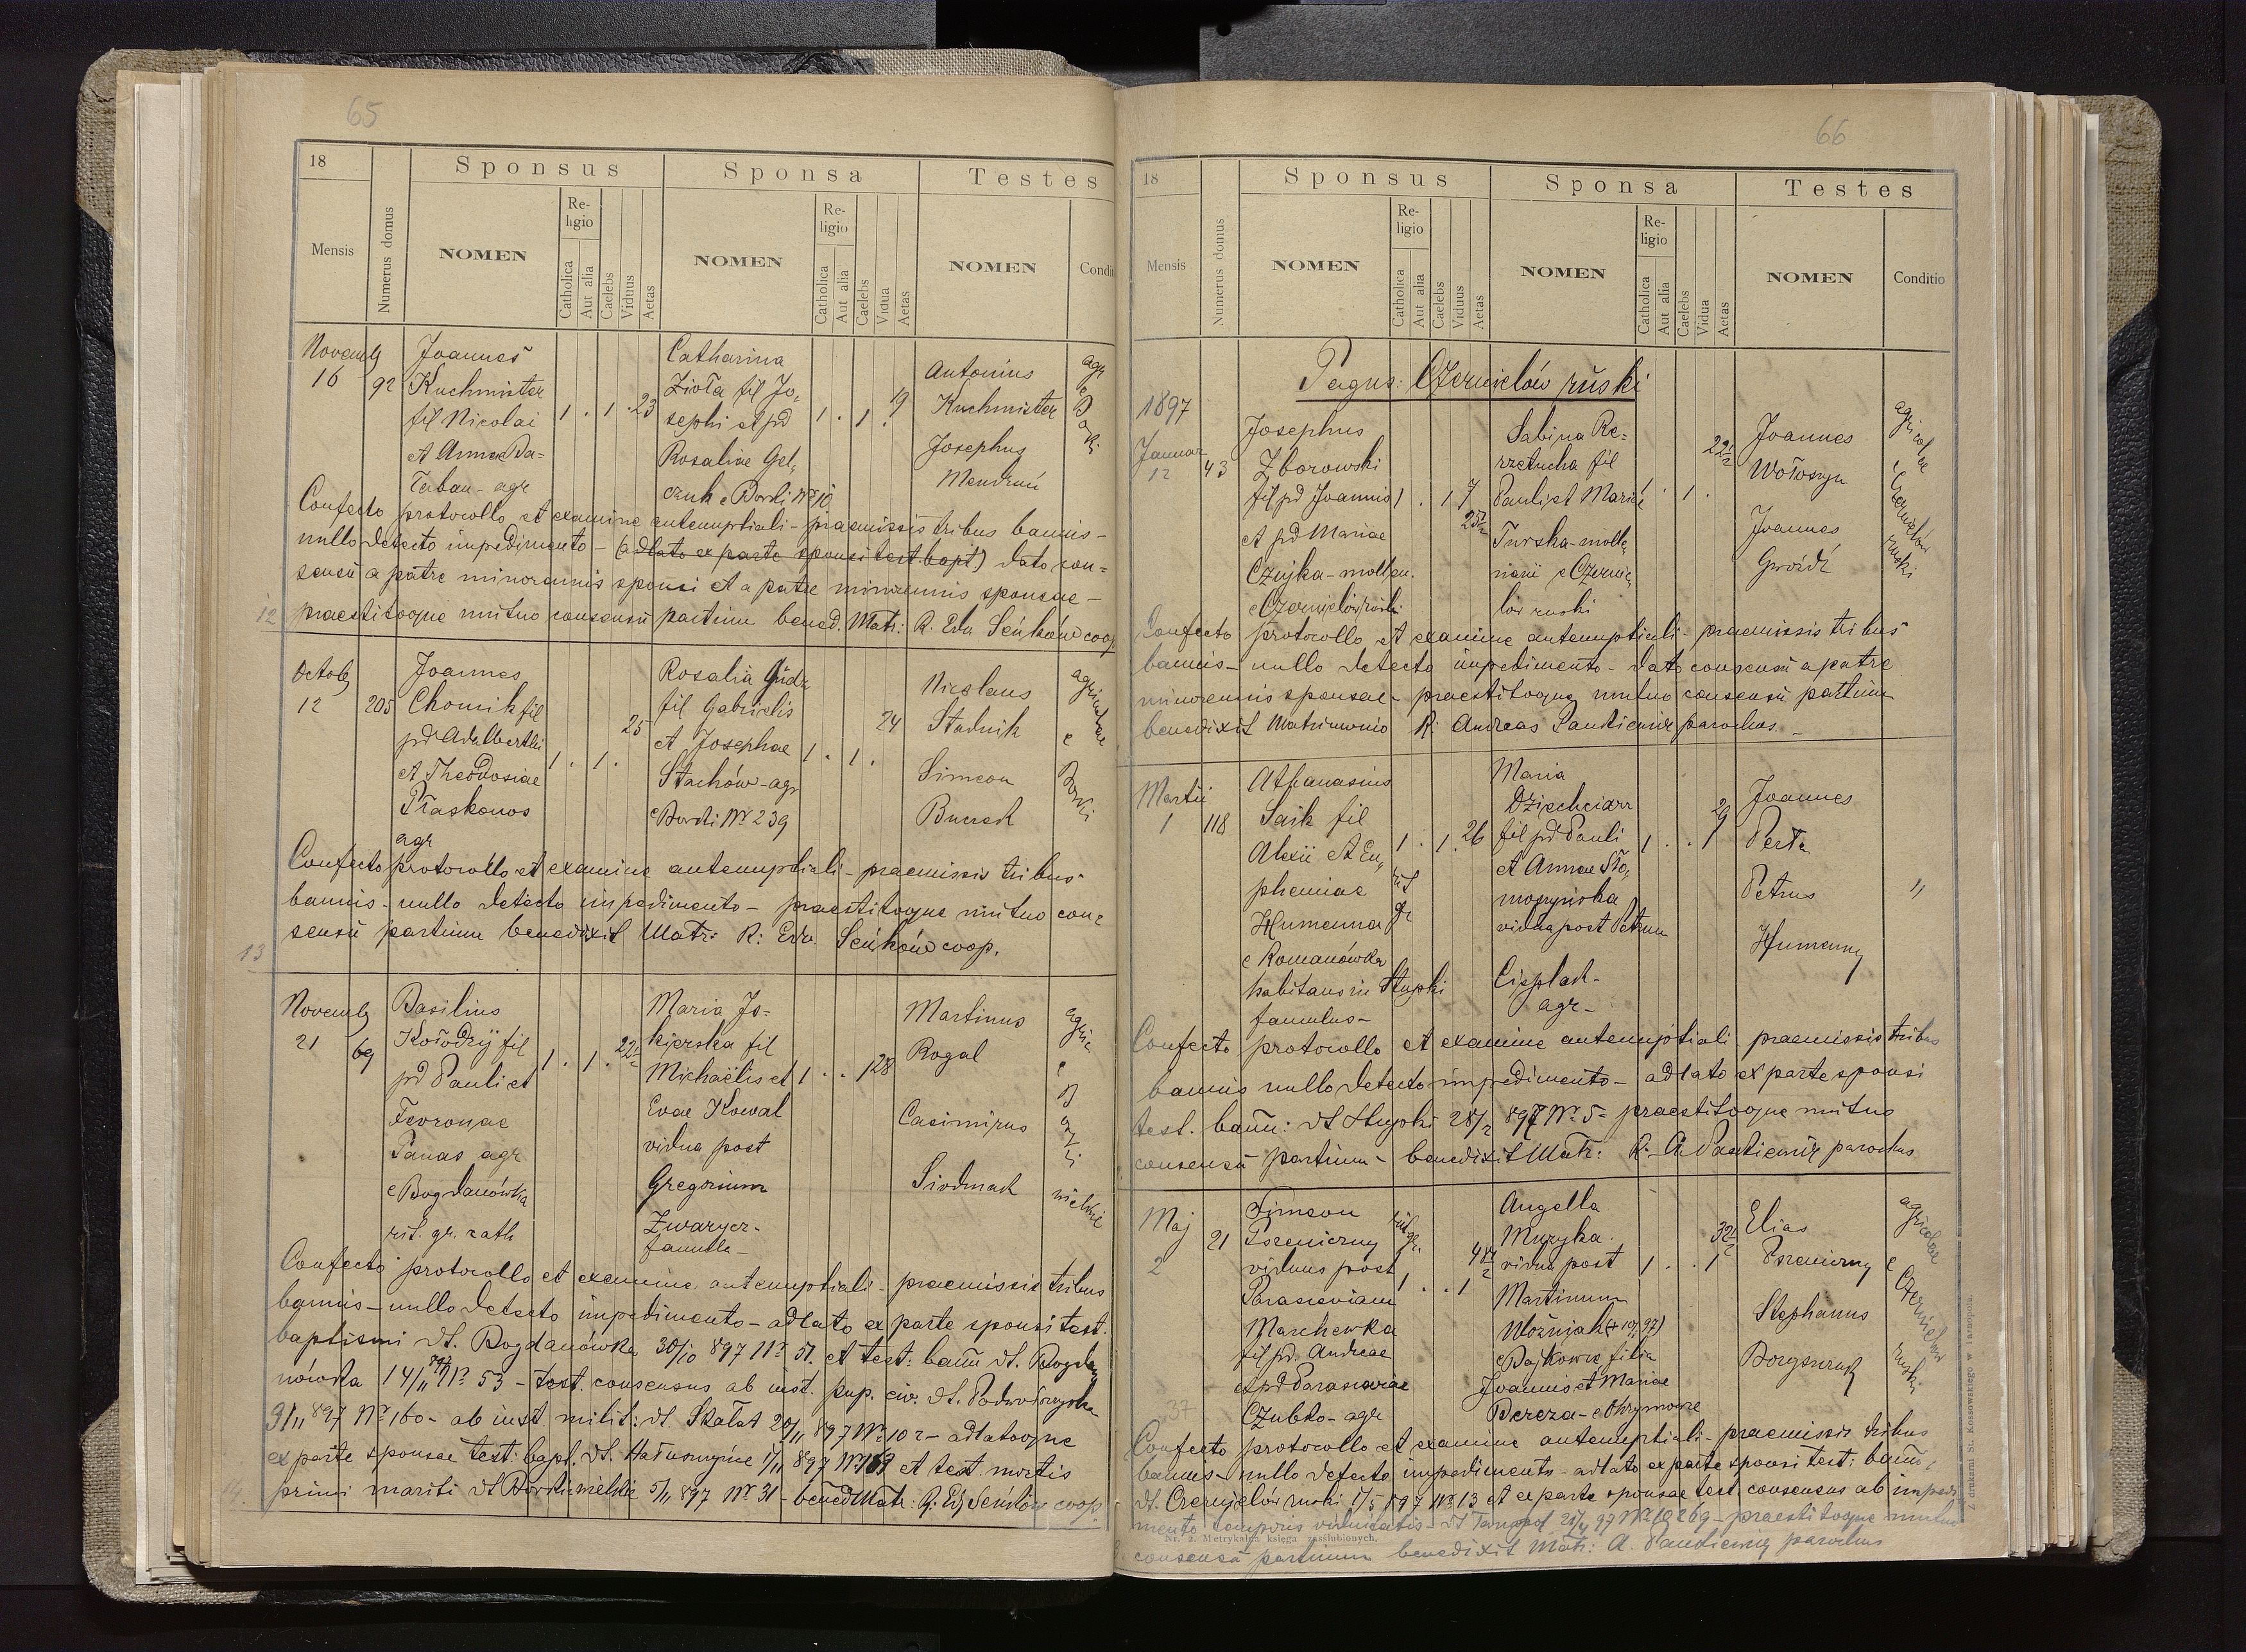 65
18
Sponsus
Sponsa
Testes
Mensis
Numerus domus
NOMEN
Religio
Catholica
Aut alia
Caelebs
Viduus
Aetas
NOMEN
Religio
Catholica
Aut alia
Caelebs
Vidua
Aetas
NOMEN
Condit
Novemb
16
92
Joannes
Kuchmister
fil Nicolai
et Annae Ba=
Taban - agr
1 . 1 . 23
Catharina
Zioła fil Jo=
sephi et pd
Rosaliae Gel=
czuk e Borki Nr 10
1 . 1 . 19
Antonius
Kuchmister
Josephus
Mendruń
agr
e
Borki
Confecto protocollo et examine antenuptiali - praemissis tribus bannis -
nullo detecto impedimento - (adlato ex parte sponsi test. bapt.) dato con=
sensu a patre minorennis sponsi et a patre minorennis sponsae -
praestitoque mutuo consensu partium bened. Matr: R. Edw Seńków coop
12
Octob
12
205
Joannes
Chomik fil
pd Adalberthi
et Theodosiae
Płaskonos
agr
1 . 1 . 25
Rosalia Gudz
fil Gabrielis
et Josephae
Stachów - agr
e Borki Nr 239
1 . 1 . 24
Nicolaus
Stadnik
Simeon
Burech
agricolae
e
Borki
Confecto protocollo et examine antenuptiali - praemissis tribus
bannis - nullo detecto impedimento - praestitoque mutuo con=
sensu partium benedixit Matr: R: Edw. Seńków coop.
13
Novemb
21
69
Basilius
Kołodzij fil
pd Pauli et
Fevroniae
Panas agr
e Bogdanówka
rit. gr. cath
1 . 1 . 22½
Maria Jo=
kierska fil
Michaëlis et
Evae Kowal
vidua post
Gregorium
Zwarycz -
famula -
1 . . 1 28
Martinus
Rogal
Casimirus
Siodmak
agric
e
Borki
wielkie
Confecto protocollo et examine antenuptiali - praemissis tribus
bannis - nullo detecto impedimento - adlato ex parte sponsi test.
baptismi dt. Bogdanówka 30/10 897 Nr 51. et test: bann dt. Bogda
nówka 14/11 897 Nr 53 - test. consensus ab inst. pup. civ. dt. Podwołoczyska
9/11 897 Nr 160 - ab inst milit: dt. Skałat 20/11 897 Nr 102 - adlatoque
ex parte sponsae test: bapt. dt. Hałuszczyńce 1/11 897 Nr 169 et test. mortis
primi mariti dt Borki wielkie 5/11 897 Nr 31 - bened Matr: R: Ed Seńków coop.
14
66
18
Sponsus
Sponsa
Testes
Mensis
Numerus domus
NOMEN
Religio
Catholica
Aut alia
Caelebs
Viduus
Aetas
NOMEN
Religio
Catholica
Aut alia
Caelebs
Vidua
Aetas
NOMEN
Conditio
Pagus: Czernielów ruski
1897
Januar
12
43
Josephus
Zborowski
fil pd Joannis
et pd Mariae
Czujka - molten.
e Czernielów ruski
1 . 1
25
Sabina Re=
rzetucha fil
Pauli et Mariae
Turska - molte
narii e Czernie
lów ruski
1 . 1 . 22½
Joannes
Wołoszyn
Joannes
Gwóźdź
agricolae
e
Czernielów
ruski
Confecto protocollo et examine antenuptiali - praemissis tribus
bannis - nullo detecto impedimento - dato consensu a patre
minorennis sponsae - praestitoque mutuo consensu partium
benedixit Matrimonio R: Andreas Pankiewicz parochus. -
Martii
1
118
Athanasius
Saik fil
Alexii et Eu=
phemiae
Humenna
e Romanówka
habitans in Stupki
famulus -
rit
gr
1 . 1 . 26
Maria
Dziechciarz
fil pd Pauli
et Annae Sło=
moczyńska
vidua post Petrum
Cieplach -
agr -
1 . . 1 29
Joannes
Perta
Petrus
Humenny
"
Confecto protocollo et examine antenuptiali praemissis tribus
bannis nullo detecto impedimento - adlato ex parte sponsi
test. bann: dt Stupki 28/2 897 Nr 5 - praestitoque mutuo
consensu partium - benedixit Matr: R. A. Pankiewicz parochus
Maj
2
21
Simeon
Pszeniczny
viduus post
Parasceviam
Marchewka
fil pd. Andreae
et pd Parasceviae
Czubko - agr
rit
gr.
1 . . 1
41½
Angella
Muzyka
vidua post
Martinum
Woźniak (+ 10/1 97)
e Bajkowce filia
Joannis et Mariae
Bereza - e Ohrymowce
1 . . 1
32½
Elias
Pszeniczny
Stephanus
Boryszczuk
agricolae
e
Czernielów
ruski
37
Confecto protocollo et examine antenuptiali - praemissis tribus
bannis - nullo detecto impedimento - adlato ex parte sponsi test: bann,
dt. Czernielów ruski 1/5 897 Nr 13 et ex parte sponsae test. consensus ab impedi
mento temporis viduitatis - dt Tarnopol 21/4 97 Nr 10269 - praestitoque mutuo
consensu partium benedixit Matr: A. Pankiewicz parochus
Nr. 2. Metrykalna księga zaślubionych.
Z drukarni St. Kossowskiego w Tarnopolu.